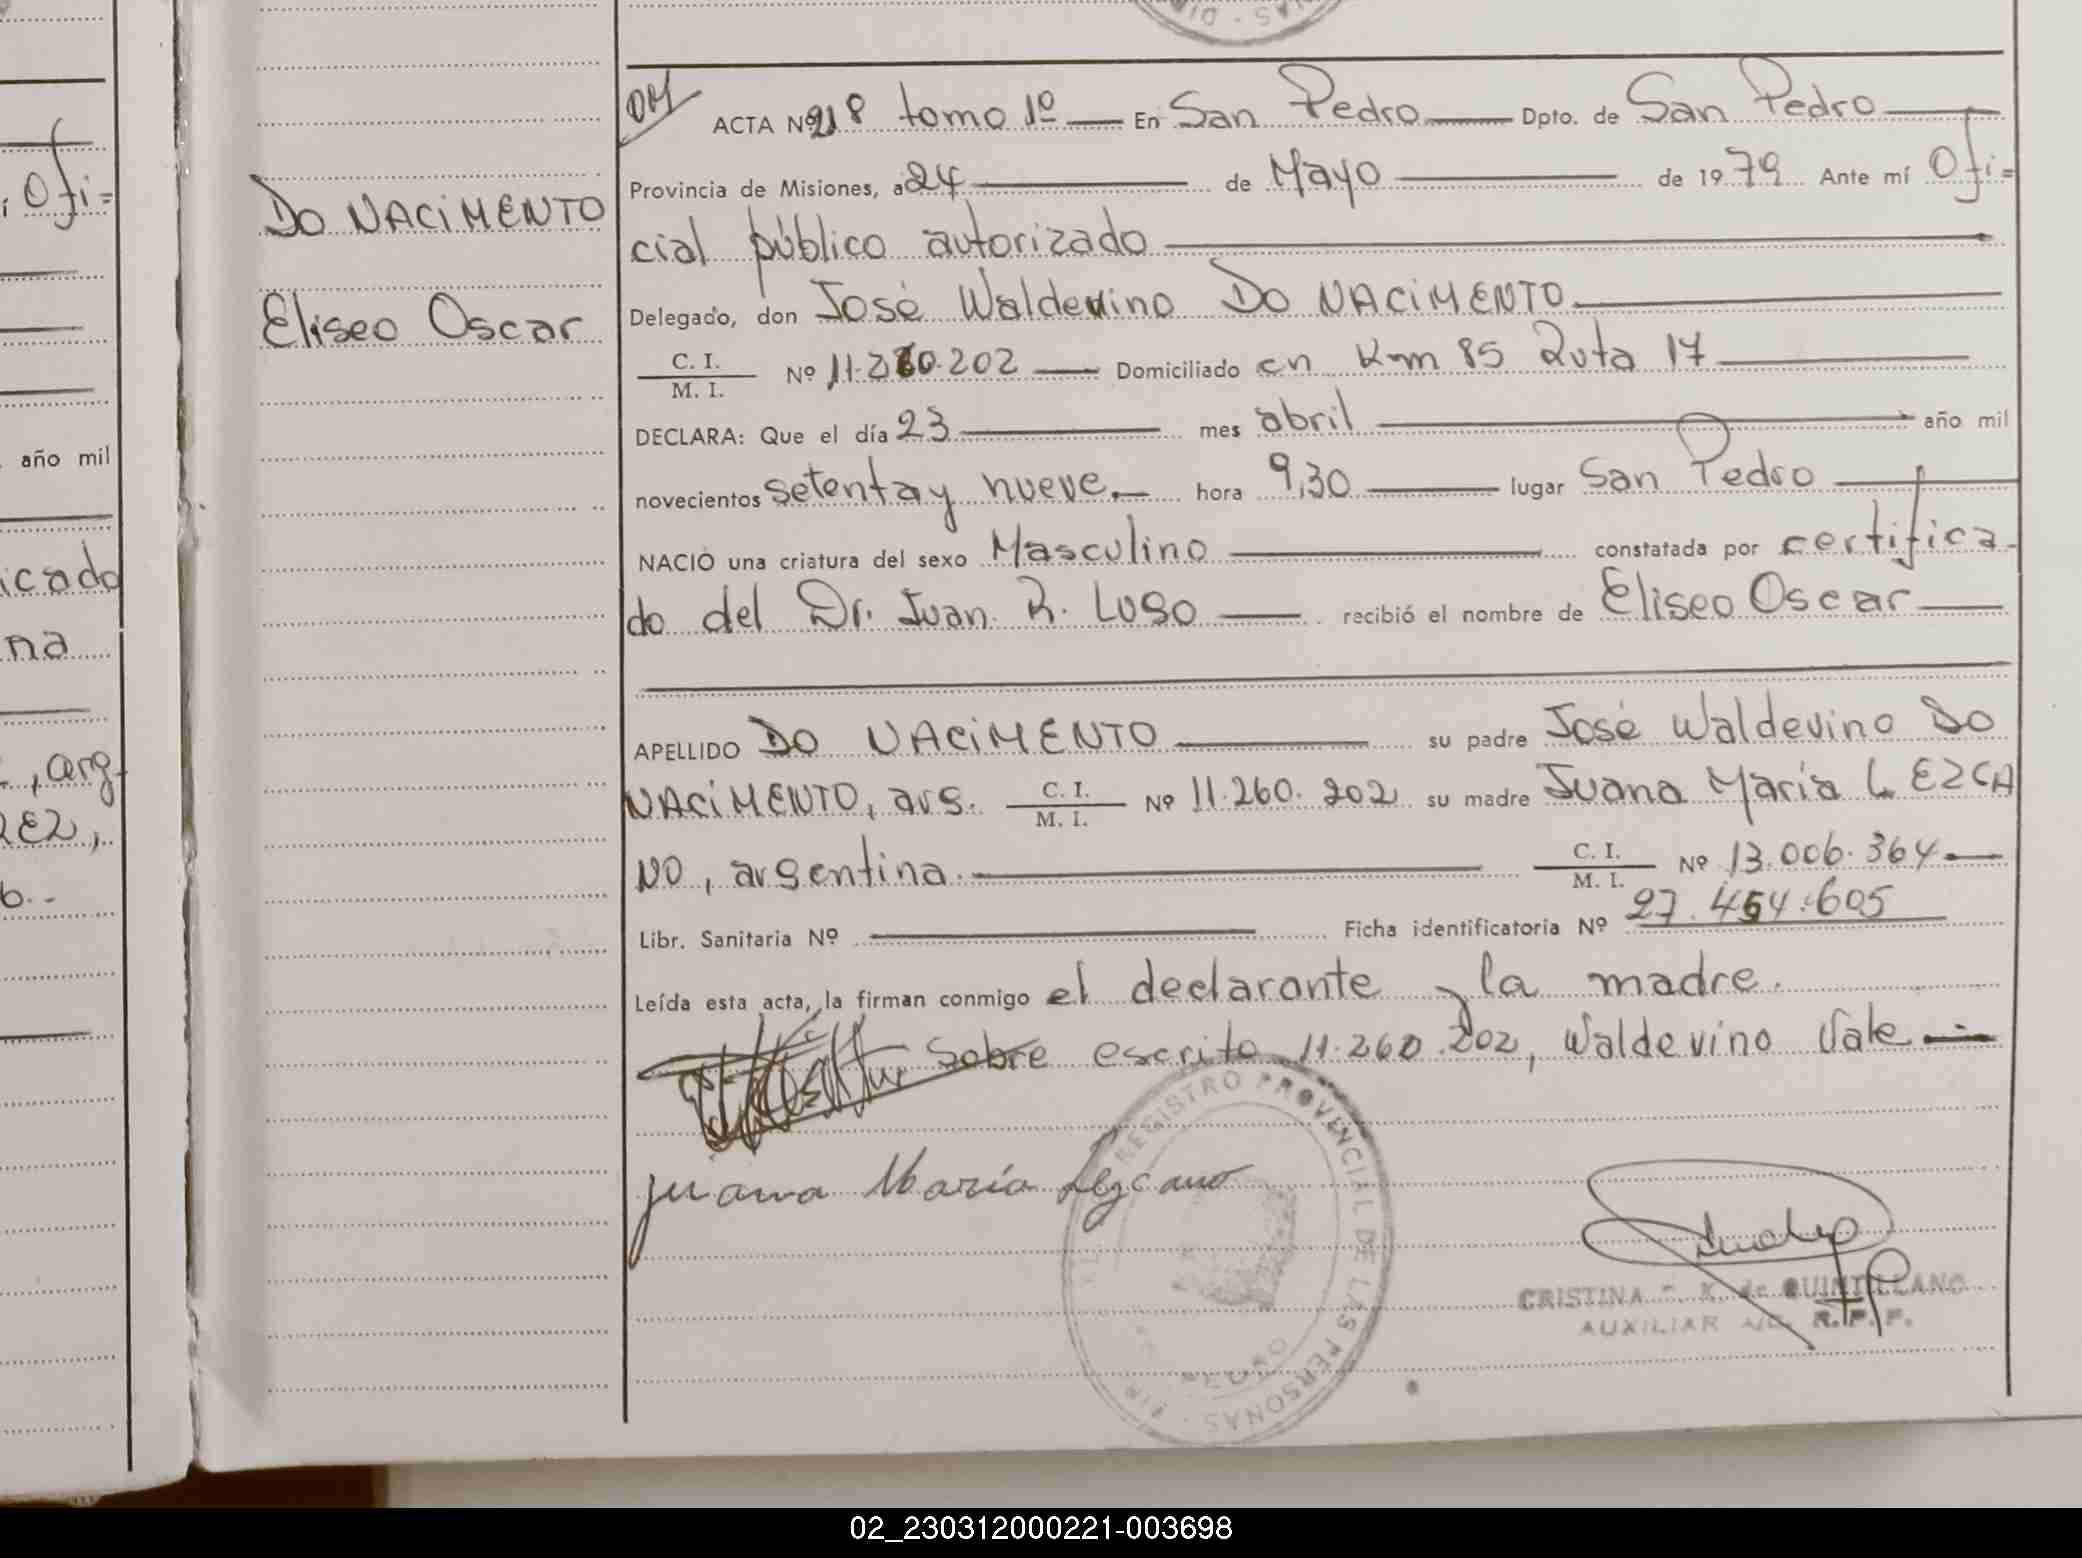 AS · DI
DM
ACTA Nº 218 tomo 1º En San Pedro Dpto. de San Pedro
Provincia de Misiones, a 24 de Mayo de 1979 Ante mí Ofi=
cial público autorizado
Delegado, don José Waldevino DO NACIMENTO
C. I. / M. I. Nº 11.260.202 Domiciliado en Km 85 Ruta 17
DECLARA: Que el día 23 mes abril año mil
novecientos setenta y nueve. hora 9,30 lugar San Pedro
NACIÓ una criatura del sexo Masculino constatada por certifica-
do del Dr. Juan. R. LUGO recibió el nombre de Eliseo Oscar
APELLIDO DO NACIMENTO su padre José Waldevino DO
NACIMENTO, arg. C. I. / M. I. Nº 11.260.202 su madre Juana María LEZCA
NO, argentina. C. I. / M. I. Nº 13.006.364
Libr. Sanitaria Nº Ficha identificatoria Nº 27.454.605
Leída esta acta, la firman conmigo el declarante y la madre.
Sobre escrito 11.260.202, Waldevino Vale
Juana María Lezcano
REGISTRO PROVINCIAL DE LAS PERSONAS
CRISTINA de QUINTILLANO
AUXILIAR R. P. P.
DO NACIMENTO
Eliseo Oscar
í Ofi=
año mil
icado
na
, arg-
REZ,
02_230312000221-003698